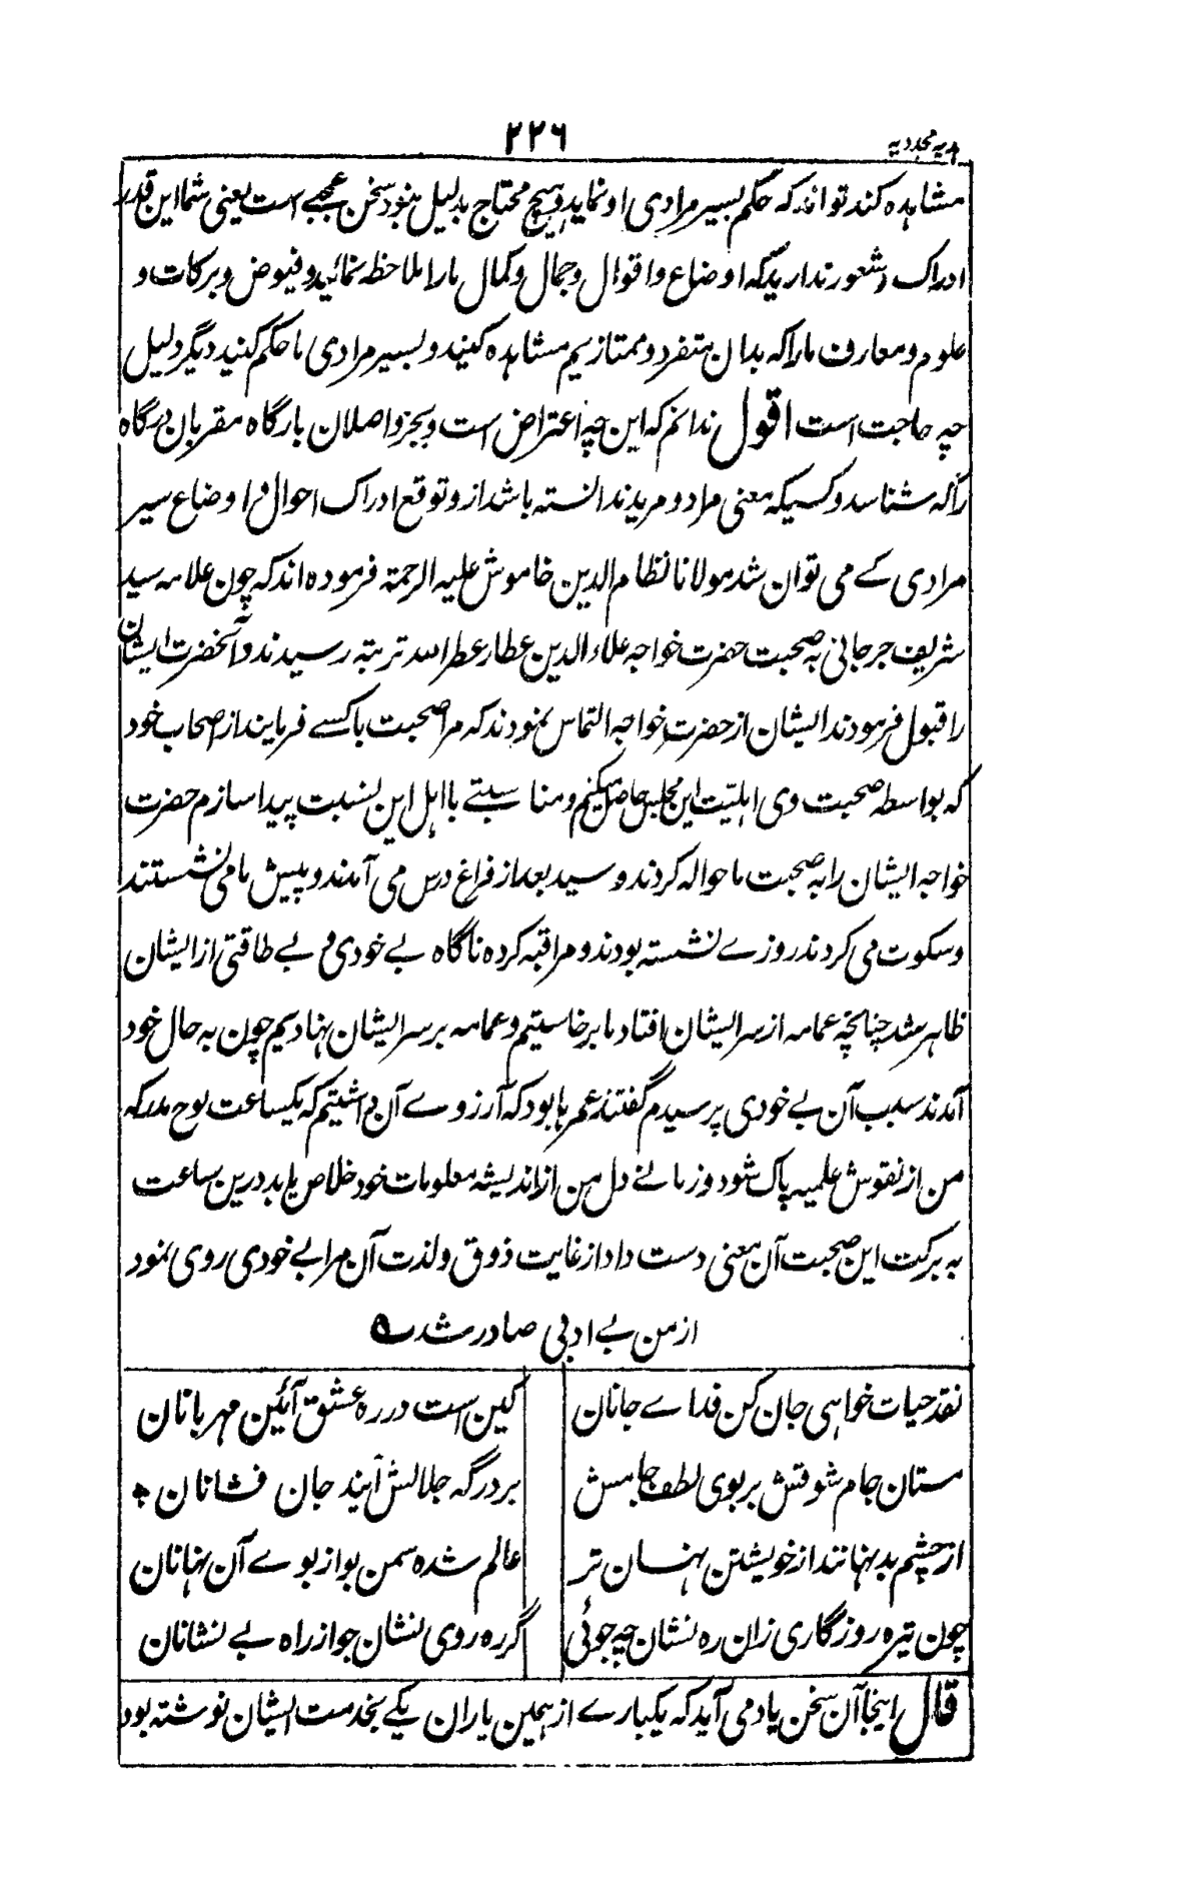 ۲۲۶
ہدیہ مجددیہ
مشاہدہ کند تواند کہ حکم بسیر مرادی او نماید و ہیچ محتاج بدلیل نبود سخن عجبے است یعنی شما این قدر
ادراک و شعور ندارید کہ اوضاع و اقوال و جمال و کمال ما را ملاحظہ نمائید و فیوض و برکات و
علوم و معارف ما را کہ بدان متفرد و ممتازیم مشاہدہ کنید و بسیر مرادی ما حکم کنید دیگر دلیل
چہ حاجت است اقول ندانم کہ این چہ اعتراض است و بجز واصلان بارگاہ مقربان درگاہ
را کہ شناسد و کسیکہ معنی مراد و مرید ندانستہ باشد ازو توقع ادراک احوال و اوضاع سیر
مرادی کے می توان شد مولانا نظام الدین خاموش علیہ الرحمۃ فرمودہ اند کہ چون علامہ سید
شریف جرجانی بہ صحبت حضرت خواجہ علاء الدین عطار عطر اللہ تربتہ رسیدند و آنحضرت ایشان
را قبول فرمودند ایشان از حضرت خواجہ التماس نمودند کہ مرا صحبت با کسے فرمایند از اصحاب خود
کہ بواسطہ صحبت وی اہلیت این مجلس حاصل میکنم و مناسبتے با اہل این نسبت پیدا سازم حضرت
خواجہ ایشان را بہ صحبت ما حوالہ کردند و سید بعد از فراغ درس می آمدند و پیش ما می نشستند
و سکوت می کردند روزے نشستہ بودند و مراقبہ کردہ ناگاہ بے خودی و بے طاقتی از ایشان
ظاہر شد چنانچہ عمامہ از سر ایشان افتاد ما برخاستیم و عمامہ بر سر ایشان نہادیم چون بہ حال خود
آمدند سبب آن بے خودی پرسیدم گفتند عمرہا بود کہ آرزوے آن داشتیم کہ یکساعت لوح مدرکہ
من از نقوش علمیہ پاک شود و زمانے دل من از اندیشہ معلومات خود خلاص یابد درین ساعت
بہ برکت این صحبت آن معنی دست داد از غایت ذوق و لذت آن مرا بے خودی روی نمود
از من بے ادبی صادر شد ے
نقد حیات خواہی جان کن فداے جانان کین است در رہ عشق آئین مہربانان
مستان جام شوقش بر بوی لطف جامش بر درگہ جلالش آیند جان فشانان
از چشم بد نہانند از خویشتن نہان تر عالم شدہ سمن بو از بوے آن نہانان
چون تیرہ روزگاری زان رہ نشان چہ جوئی گر رہ روی نشان جو از راہ بے نشانان
قال اینجا آن سخن یاد می آید کہ یکبارے از ہمین یاران یکے بخدمت ایشان نوشتہ بود